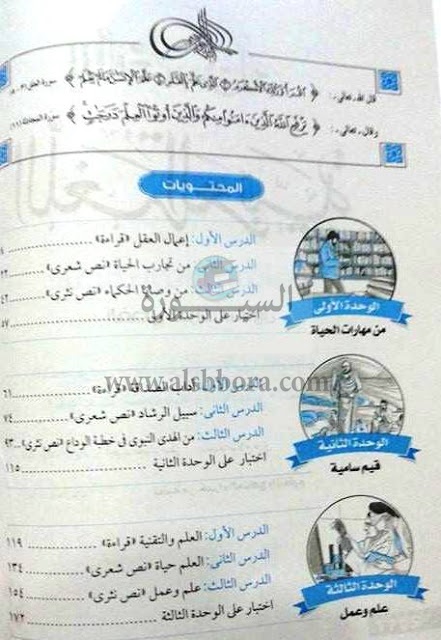 قال الله تعالى : ﴿ اقْرَأْ وَرَبُّكَ الْأَكْرَمُ الَّذِي عَلَّمَ بِالْقَلَمِ عَلَّمَ الْإِنسَانَ مَا لَمْ يَعْلَمْ ﴾ سورة العلق
وقال تعالى : ﴿ يَرْفَعِ اللَّهُ الَّذِينَ ءَامَنُوا مِنكُمْ وَالَّذِينَ أُوتُوا الْعِلْمَ دَرَجَاتٍ ﴾ سورة المجادلة (١١)
المحتويات
الوحدة الأولى
من مهارات الحياة
الدرس الأول: إعمال العقل «قراءة»
الدرس الثانى: من تجارب الحياة «نص شعرى»
الدرس الثالث: من وصايا الحكماء «نص نثرى»
اختبار على الوحدة الأولى
السبورة
www.alsbbora.com
الوحدة الثانية
قيم سامية
الدرس الأول: آداب الصداقة «قراءة» ٦١
الدرس الثانى: سبيل الرشاد «نص شعرى» ٧٤
الدرس الثالث: من الهدى النبوى فى خطبة الوداع «نص نثرى» ٩٣
اختبار على الوحدة الثانية ١١٥
الوحدة الثالثة
علم وعمل
الدرس الأول: العلم والتقنية «قراءة» ١١٩
الدرس الثانى: العلم حياة «نص شعرى» ١٣٤
الدرس الثالث: علم وعمل «نص نثرى» ١٥٤
اختبار على الوحدة الثالثة ١٧٢